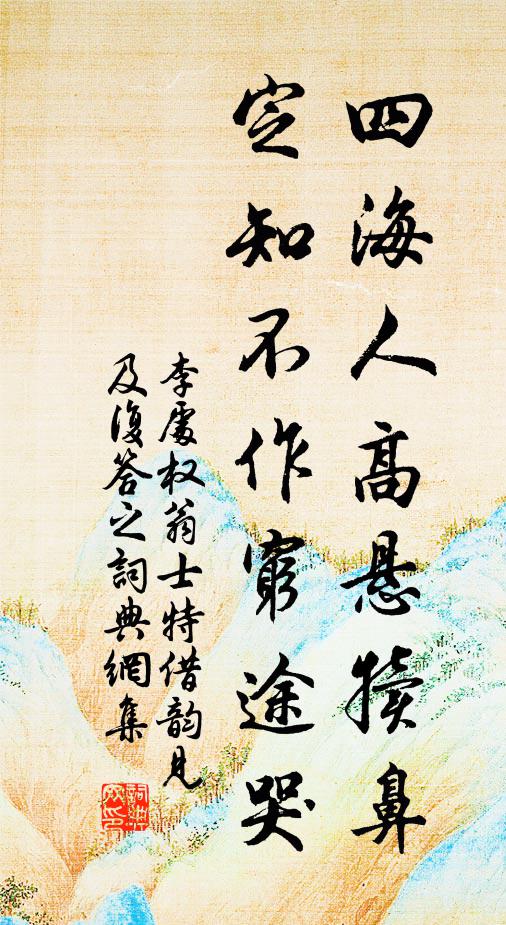 四海人高悬犊鼻
定知不作窮途哭
李處权翁士特借韵見
及復答之詞典網集